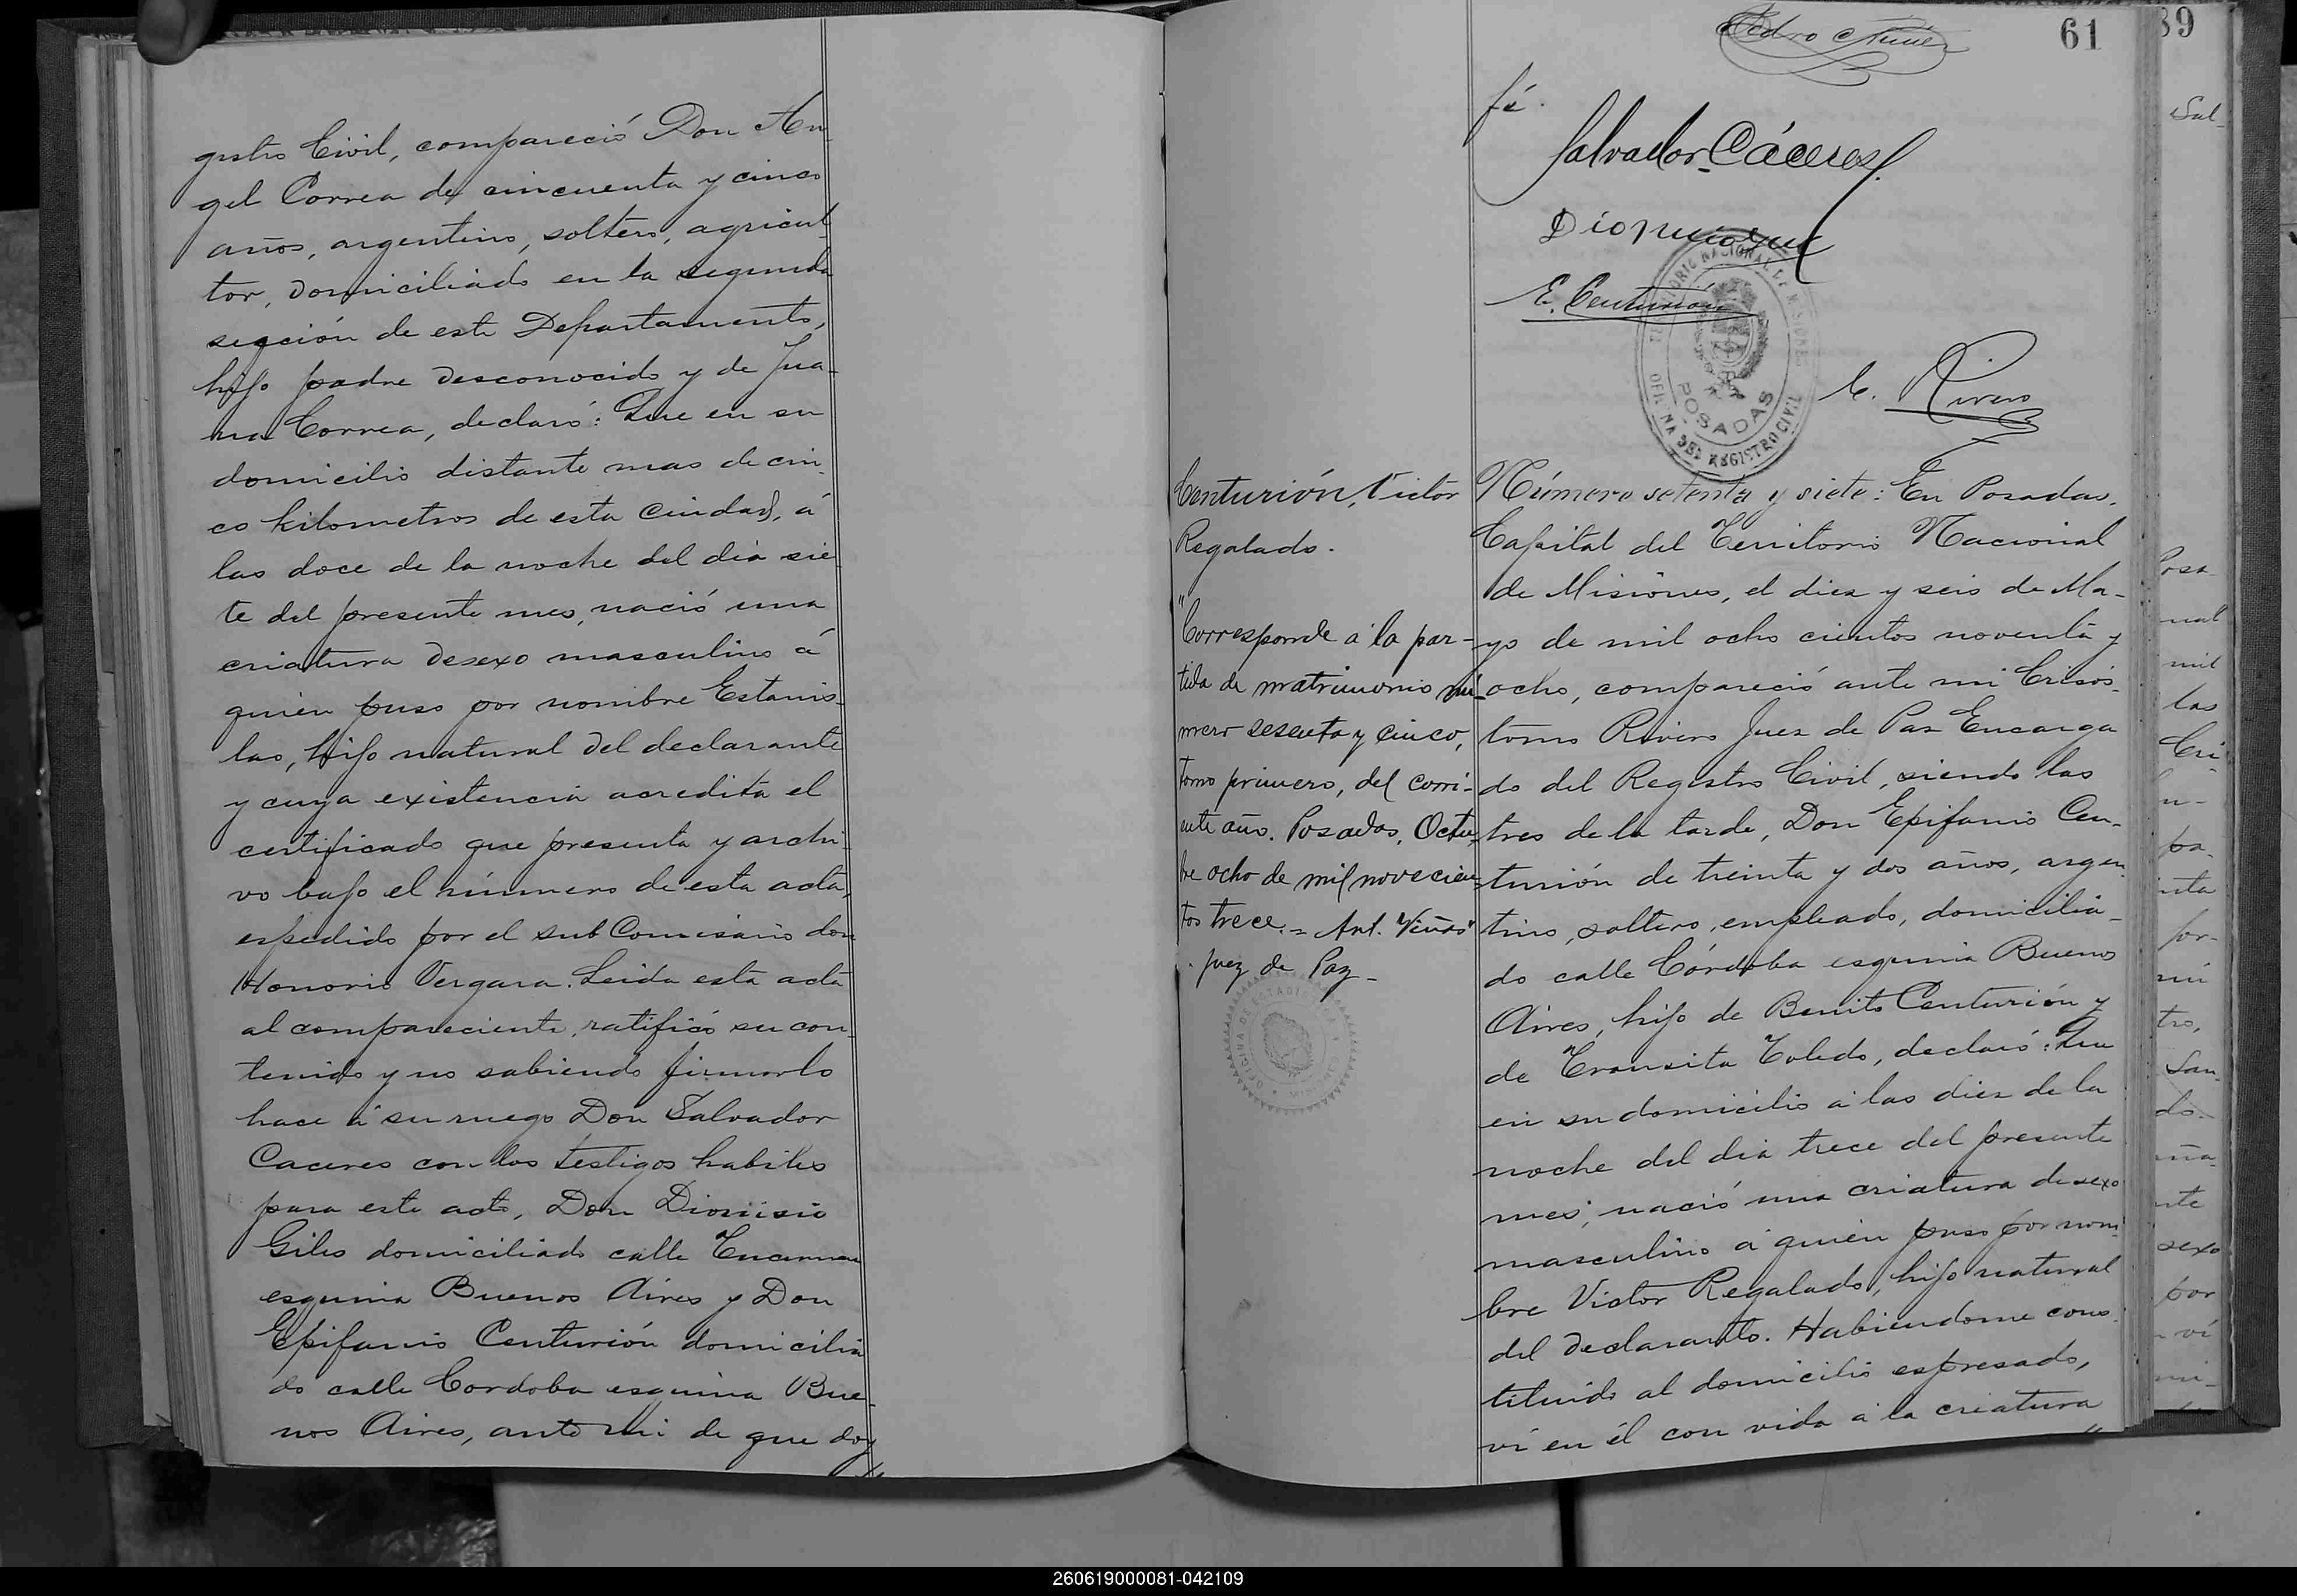 gistro Civil, compareció Don An
gel Correa de cincuenta y cinco
años, argentino, soltero, agricul
tor, domiciliado en la segunda
sección de este Departamento,
hijo padre desconocido y de Jua-
na Correa, declaró: Que en su
domicilio distante mas de cin
co kilometros de esta Ciudad, á
las doce de la noche del dia sie
te del presente mes, nació una
criatura de sexo masculino á
quién puso por nombre Estanis-
lao, hijo natural del declarante
y cuya existencia acredita el
certificado que presenta y archi-
vo bajo el número de esta acta,
espedido por el sub Comisario don
Honorio Vergara. Leida esta acta
al compareciente, ratificó su con
tenido y no sabiendo firmarlo
hace á su ruego Don Salvador
Caceres con los testigos habiles
para este acto, Don Dionisio
Giles domiciliado calle
esquina Buenos Aires y Don
Epifanio Centurión domicilia
do calle Cordoba esquina Bue-
nos Aires, ante mi de que doy
61
fé.
Salvador Cáceres
E. Centurión
TERRITORIO NACIONAL DE MISIONES
POSADAS
OFICINA DEL REGISTRO CIVIL
C. Rivero
Centurión, Victor
Regalado.
"Corresponde á la par-
tida de matrimonio nú-
mero sesenta y cinco,
tomo primero, del corri-
ente año. Posadas, Octu-
bre ocho de mil novecien-
tos trece. = Ant. Viñas"
juez de Paz -
Número setenta y siete: En Posadas,
Capital del Territorio Nacional
de Misiones, el diez y seis de Ma-
yo de mil ocho cientos noventa y
ocho, compareció ante mi Crisós-
tomo Rivero Juez de Paz Encarga
do del Registro Civil, siendo las
tres de la tarde, Don Epifanio Cen-
turión de treinta y dos años, argen
tino, soltero, empleado, domicilia-
do calle Córdoba esquina Buenos
Aires, hijo de Benito Centurión y
de Transita Toledo, declaró: Que
en su domicilio á las diez de la
noche del dia trece del presente
mes, nació una criatura de sexo
masculino á quién puso por nom
bre Victor Regalado, hijo natural
del declarante. Habiendome cons
tituido al domicilio espresado,
ví en él con vida á la criatura
39
260619000081-042109